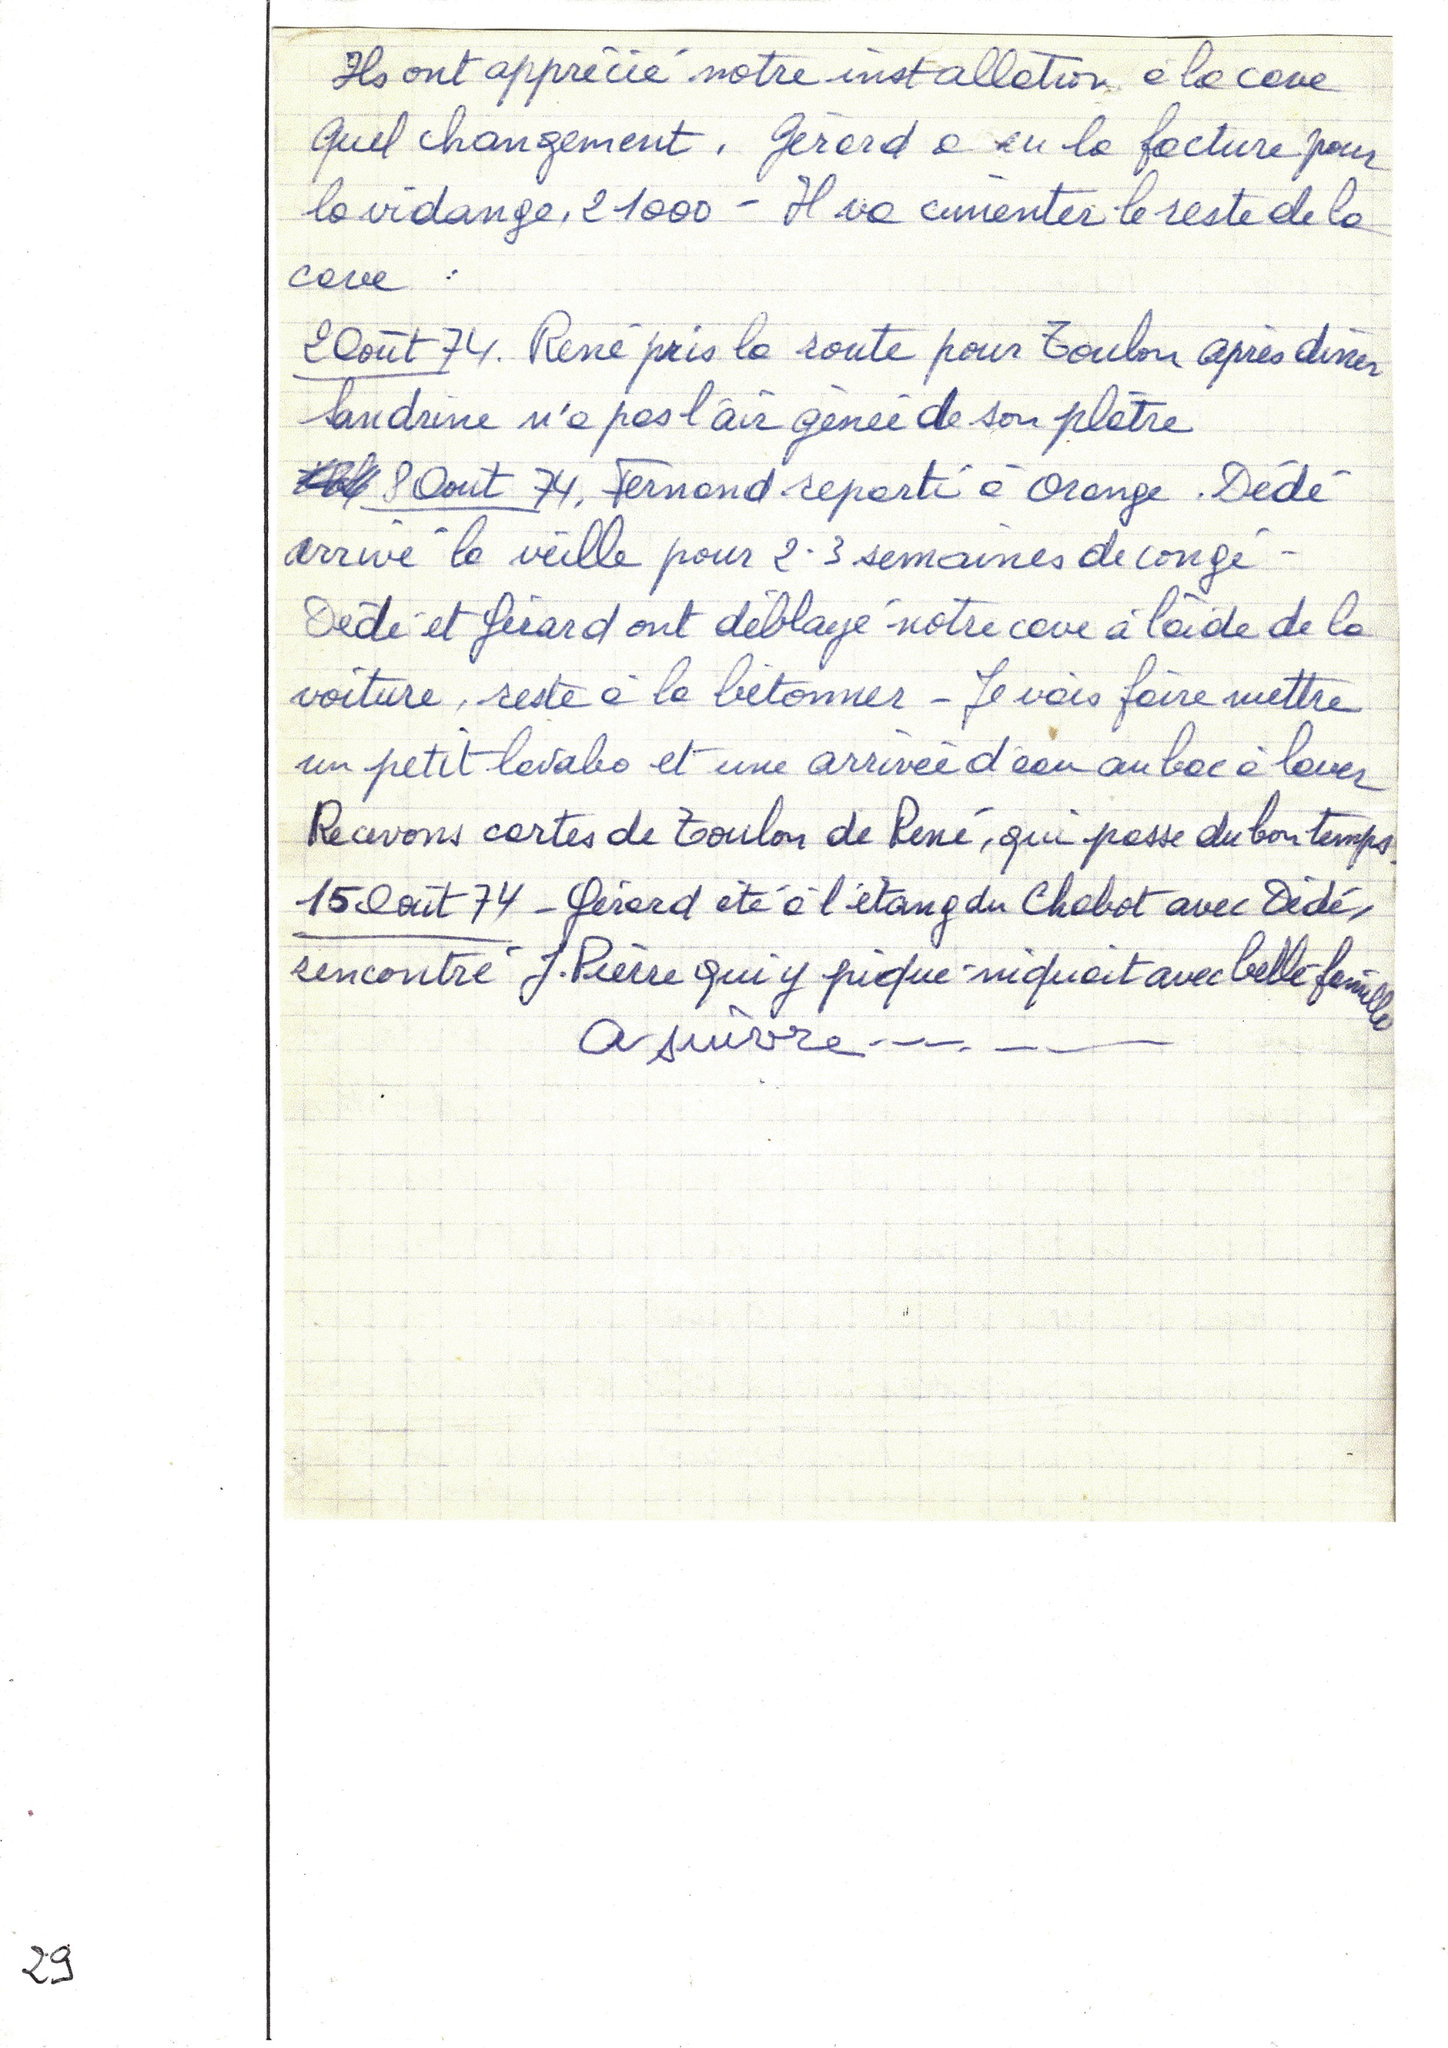 Ils ont apprécié notre installation à la cave
Quel changement. Gérard a eu la facture pour
la vidange, 21000 - Il va cimenter le reste de la
cave :
2 Août 74. René pris la route pour Toulon après diner
Sandrine n'a pas l'air génée de son platre
8 Aout 74. Fernand reparti à Orange. Dédé
arrivé la veille pour 2-3 semaines de congé -
Dédé et Gérard ont déblayé notre cave à l'aide de la
voiture, reste à la bétonner - Je vais faire mettre
un petit lavabo et une arrivée d'eau au bac à laver
Recevons cartes de Toulon de René, qui passe du bon temps.
15 Août 74 - Gérard été à l'étang du Chabot avec Dédé,
rencontré J. Pierre qui y pique-niquait avec belle-famille
A suivre ---. — —
29